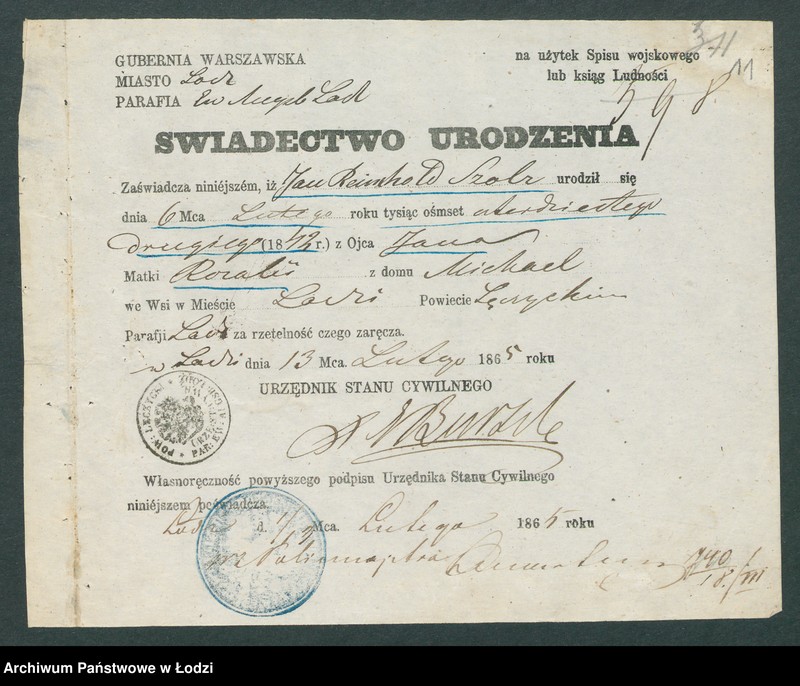 GUBERNIA WARSZAWSKA
MIASTO Lodz
PARAFIA Ew Augsb Lodz
na użytek Spisu wojskowego
lub ksiąg Ludności
11
598
SWIADECTWO URODZENIA
Zaświadcza niniéjszém, iż Jan Reinhold Szolz urodził się
dnia 6 Mca Lutego roku tysiąc ośmset czterdziestego
drugiego (1842 r.) z Ojca Jana
Matki Rozalii z domu Michael
we Wsi w Mieście Lodzi Powiecie Łęczyckim
Parafji Lodz za rzetelność czego zaręcza.
w Lodzi dnia 13 Mca. Lutego 1865 roku
URZĘDNIK STANU CYWILNEGO
POW: ŁĘCZYCKI
Własnoręczność powyższego podpisu Urzędnika Stanu Cywilnego
niniéjszem poświadcza.
Lodz d. Mca. Lutego 1865 roku
Archiwum Państwowe w Łodzi